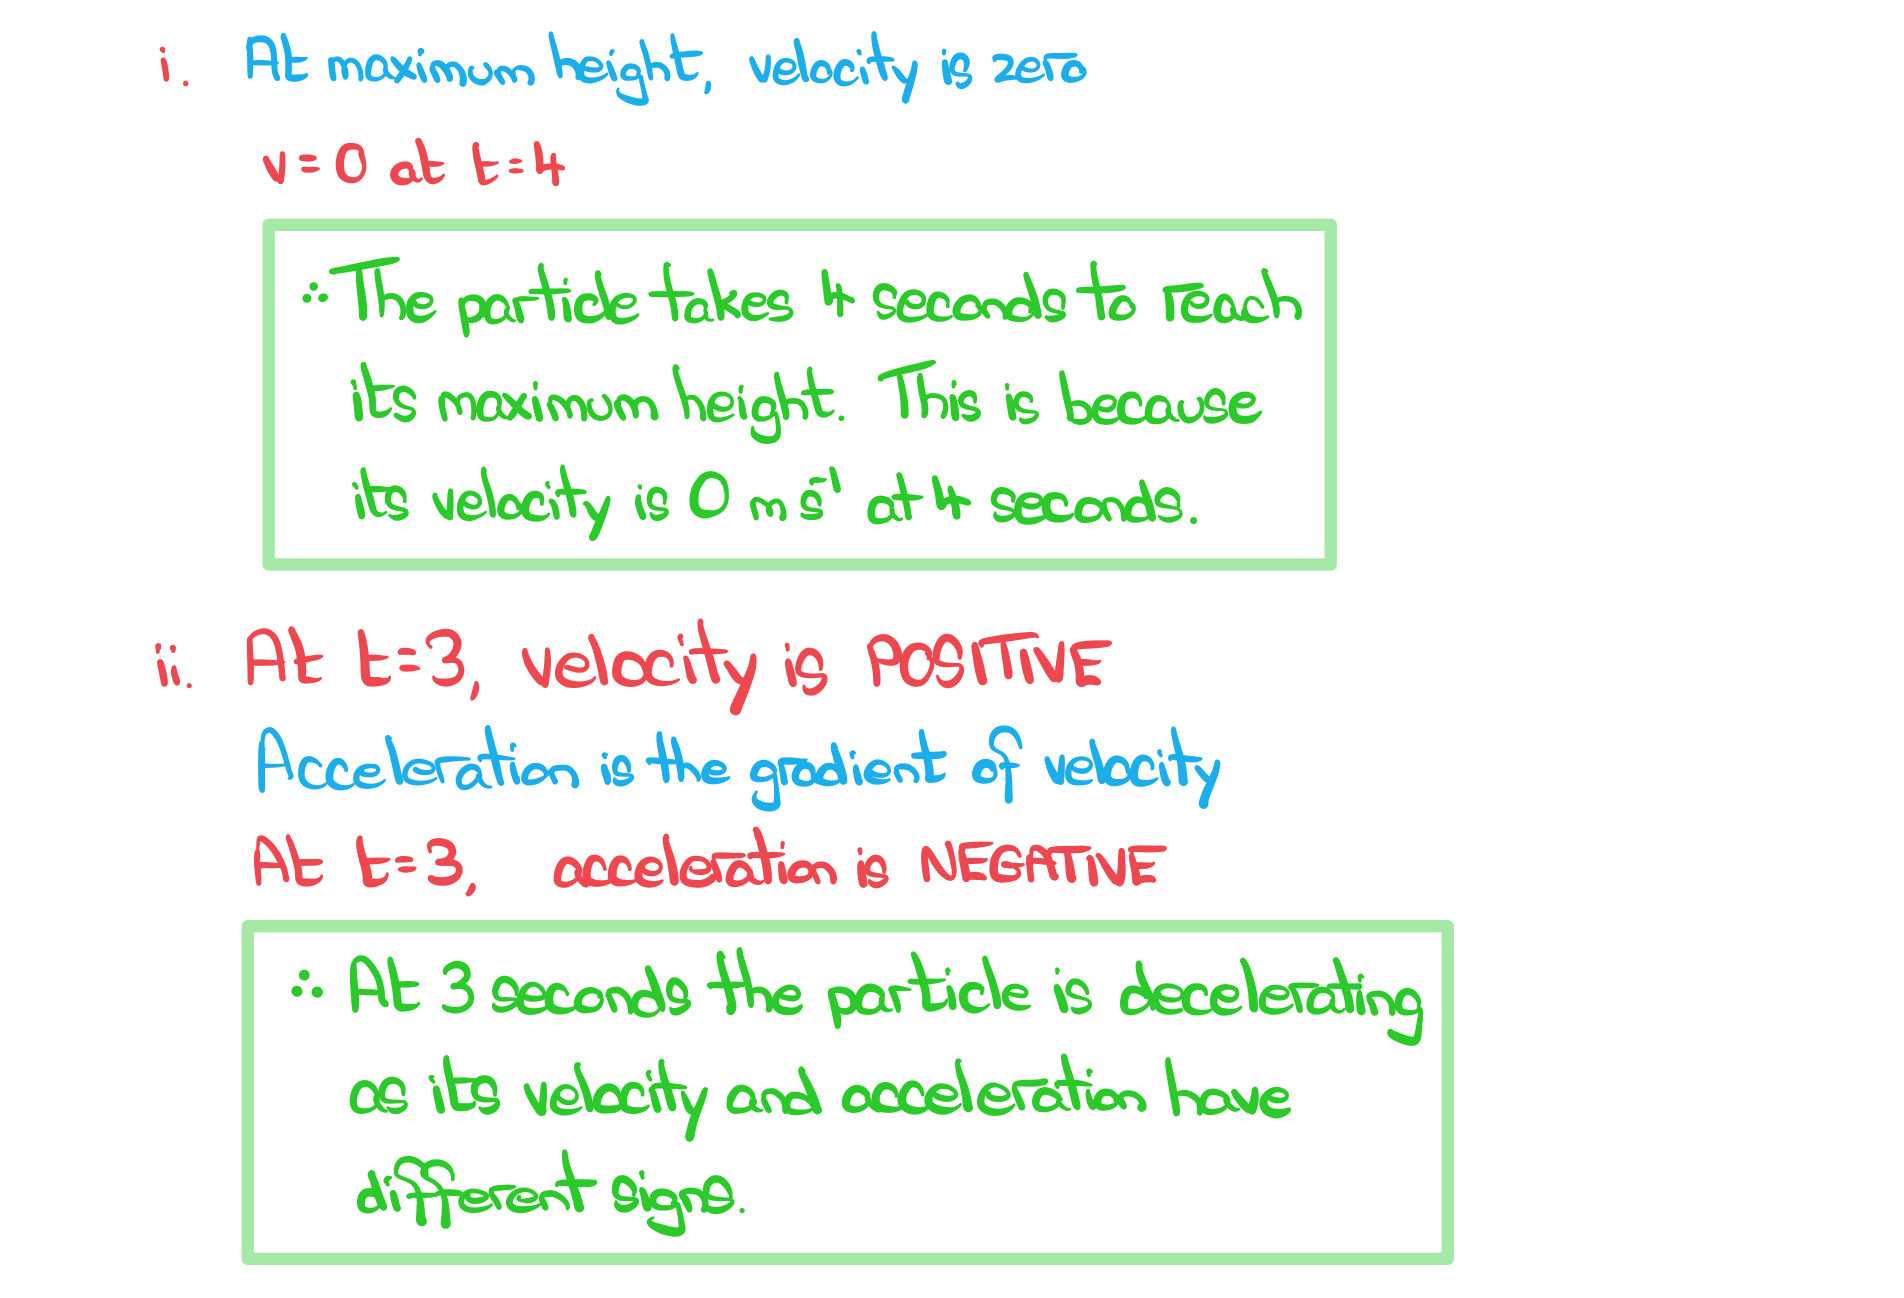 i. At maximum height, velocity is zero
v=0 at t=4
∴ The particle takes 4 seconds to reach
its maximum height. This is because
its velocity is 0 m s⁻¹ at 4 seconds.
ii. At t=3, velocity is POSITIVE
Acceleration is the gradient of velocity
At t=3, acceleration is NEGATIVE
∴ At 3 seconds the particle is decelerating
as its velocity and acceleration have
different signs.